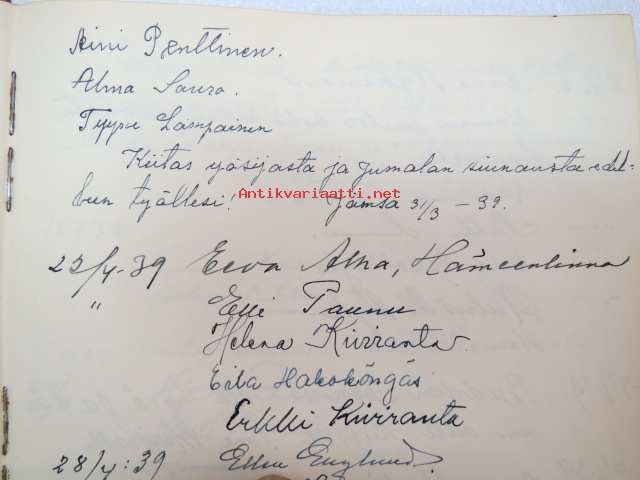 Aini Penttinen.
Alma Sauro.
Tyyne Lampainen
Kiitos yösijasta ja Jumalan siunausta edel-
leen työllesi!
Antikvariaatti.net
Jämsä 31/3 - 39.
23/4-39 Eeva Aha, Hämeenlinna
" Elli Paunu
Helena Kiviranta
Eila Hakoköngäs
Erkki Kiviranta
28/4:39 Ellen Englund.